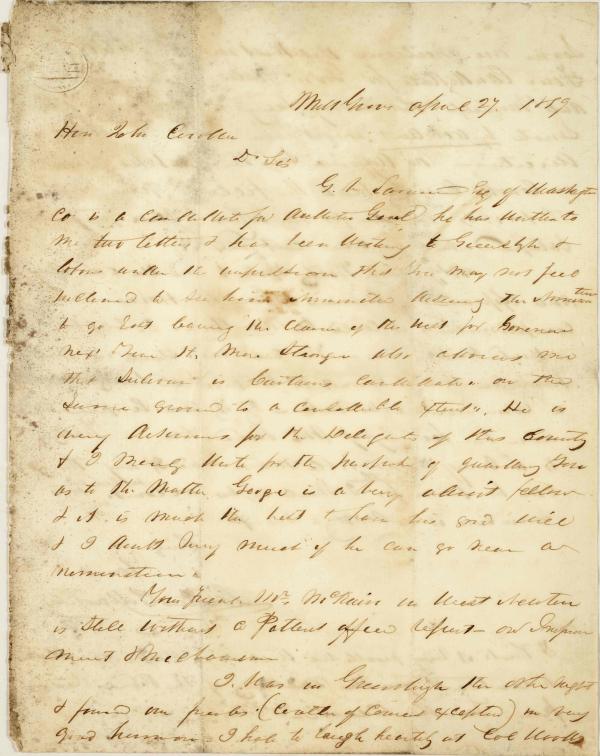 Mill Grove April 27. 1859
Hon John Covode
Dr Sir
G. L Esq of Washington
Co is a candidate for Auditor Genl he has written to
me two letters & has been writing to Greensbgh &
labors under the impression that you may not feel
inclined to see him nominated desiring the Nomination
to go East leaving the claim of the West for Governor
next Year the More Stronger also advises me
that is Curtins candidate on the
Same ground to a extent. He is
very for the Delegates of this County
& I merely write for the purpose of guarding You
as to the Matter George is a very fellow
& it is much the best to have his good will
& I doubt very much if he can go near a
nomination.
Your friend Mr. McKain in West Newton
is still without a Patent office report on
ment & mechanism
I was in Greensbgh the other night
& found our friends (Coulter of Course excepted) in very
good humour I had to laugh heartily at Col